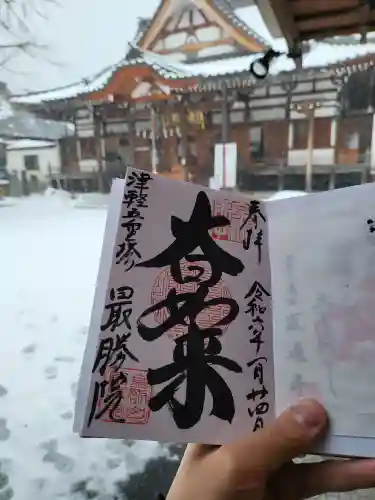 奉拝
令和六年一月廿四
大日如来
津軽五重塔
最勝院